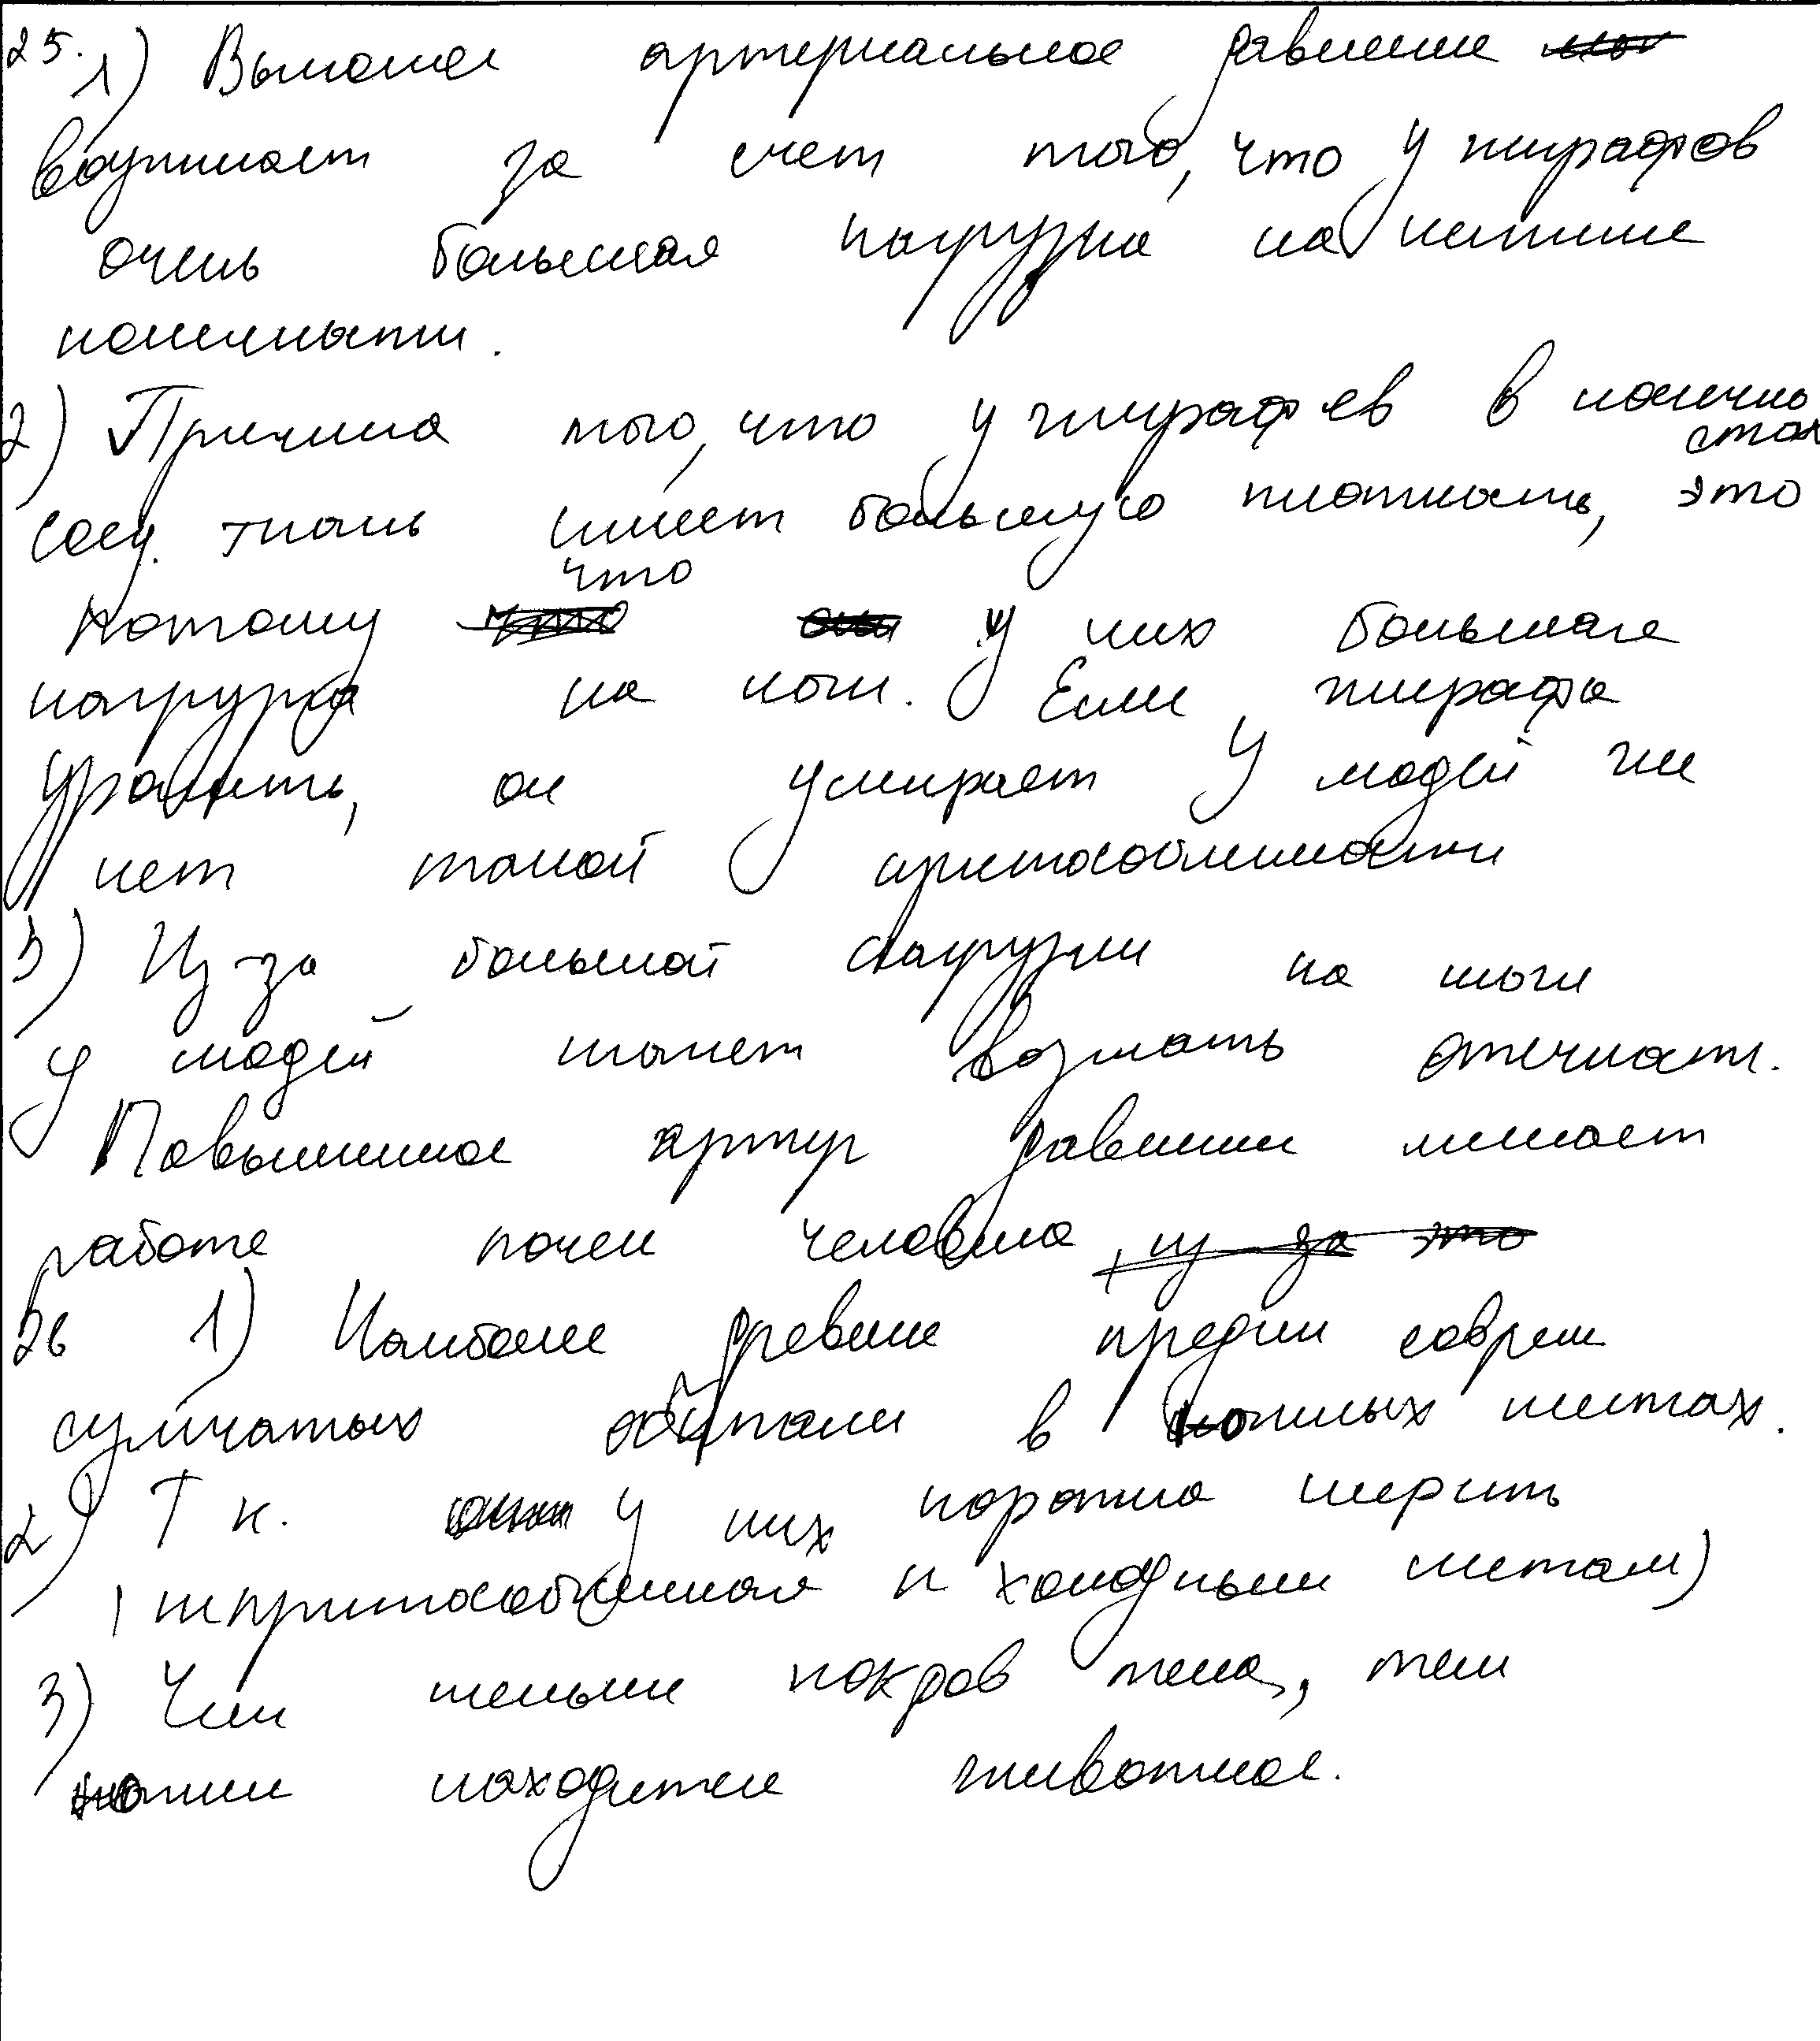 25. 1) Высокое артериальное давление
возникает за счет того, что у жирафов
очень большая нагрузка на нижние
конечности.
2) Причина того, что у жирафов в конечно
стях
соед. ткань имеет большую плотность, это
потому что у них большая
нагрузка на ноги. Если жирафа
уронить, он умирает У людей же
нет такой приспособленности
3) Из-за большой нагрузки на ноги
у людей может возникать отечность.
Повышенное артер давление мешает
работе почек человека
26 1) Наиболее древние предки соврем
сумчатых обитали в южных местах.
2) Т к. у них короткая шерсть
(неприспособленная к холодным местам)
3) Чем меньше покров тела, тем
южнее находится животное.